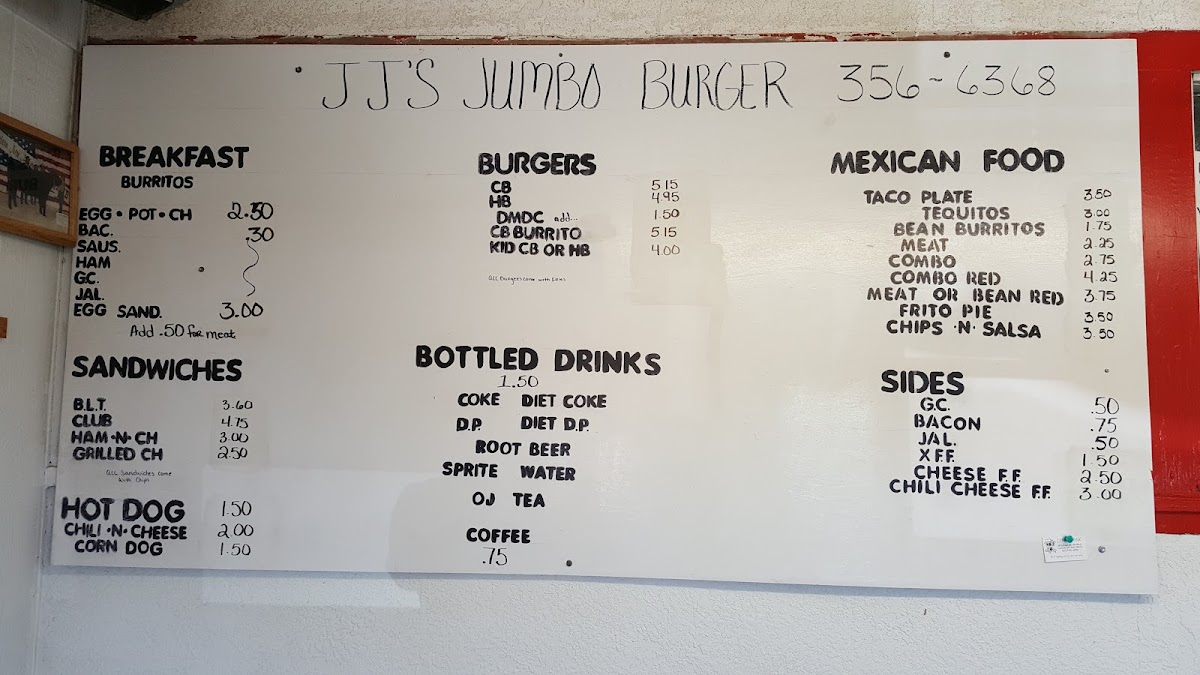 JJ'S JUMBO BURGER 356-6368
BREAKFAST
BURRITOS
EGG • POT • CH 2.50
BAC. .30
SAUS.
HAM
GC.
JAL.
EGG SAND. 3.00
Add .50 for meat
SANDWICHES
B.L.T. 3.60
CLUB 4.75
HAM-N-CH 3.00
GRILLED CH 2.50
All Sandwiches come
with Chips
HOT DOG 1.50
CHILI-N-CHEESE 2.00
CORN DOG 1.50
BURGERS
CB 5.15
HB 4.95
DMDC add... 1.50
CB BURRITO 5.15
KID CB OR HB 4.00
All Burgers come with
BOTTLED DRINKS
1.50
COKE DIET COKE
D.P. DIET D.P.
ROOT BEER
SPRITE WATER
OJ TEA
COFFEE
.75
MEXICAN FOOD
TACO PLATE 3.50
TEQUITOS 3.00
BEAN BURRITOS 1.75
MEAT 2.25
COMBO 2.75
COMBO RED 4.25
MEAT OR BEAN RED 3.75
FRITO PIE 3.50
CHIPS-N-SALSA 3.50
SIDES
G.C. .50
BACON .75
JAL. .50
X F.F. 1.50
CHEESE F.F. 2.50
CHILI CHEESE F.F. 3.00